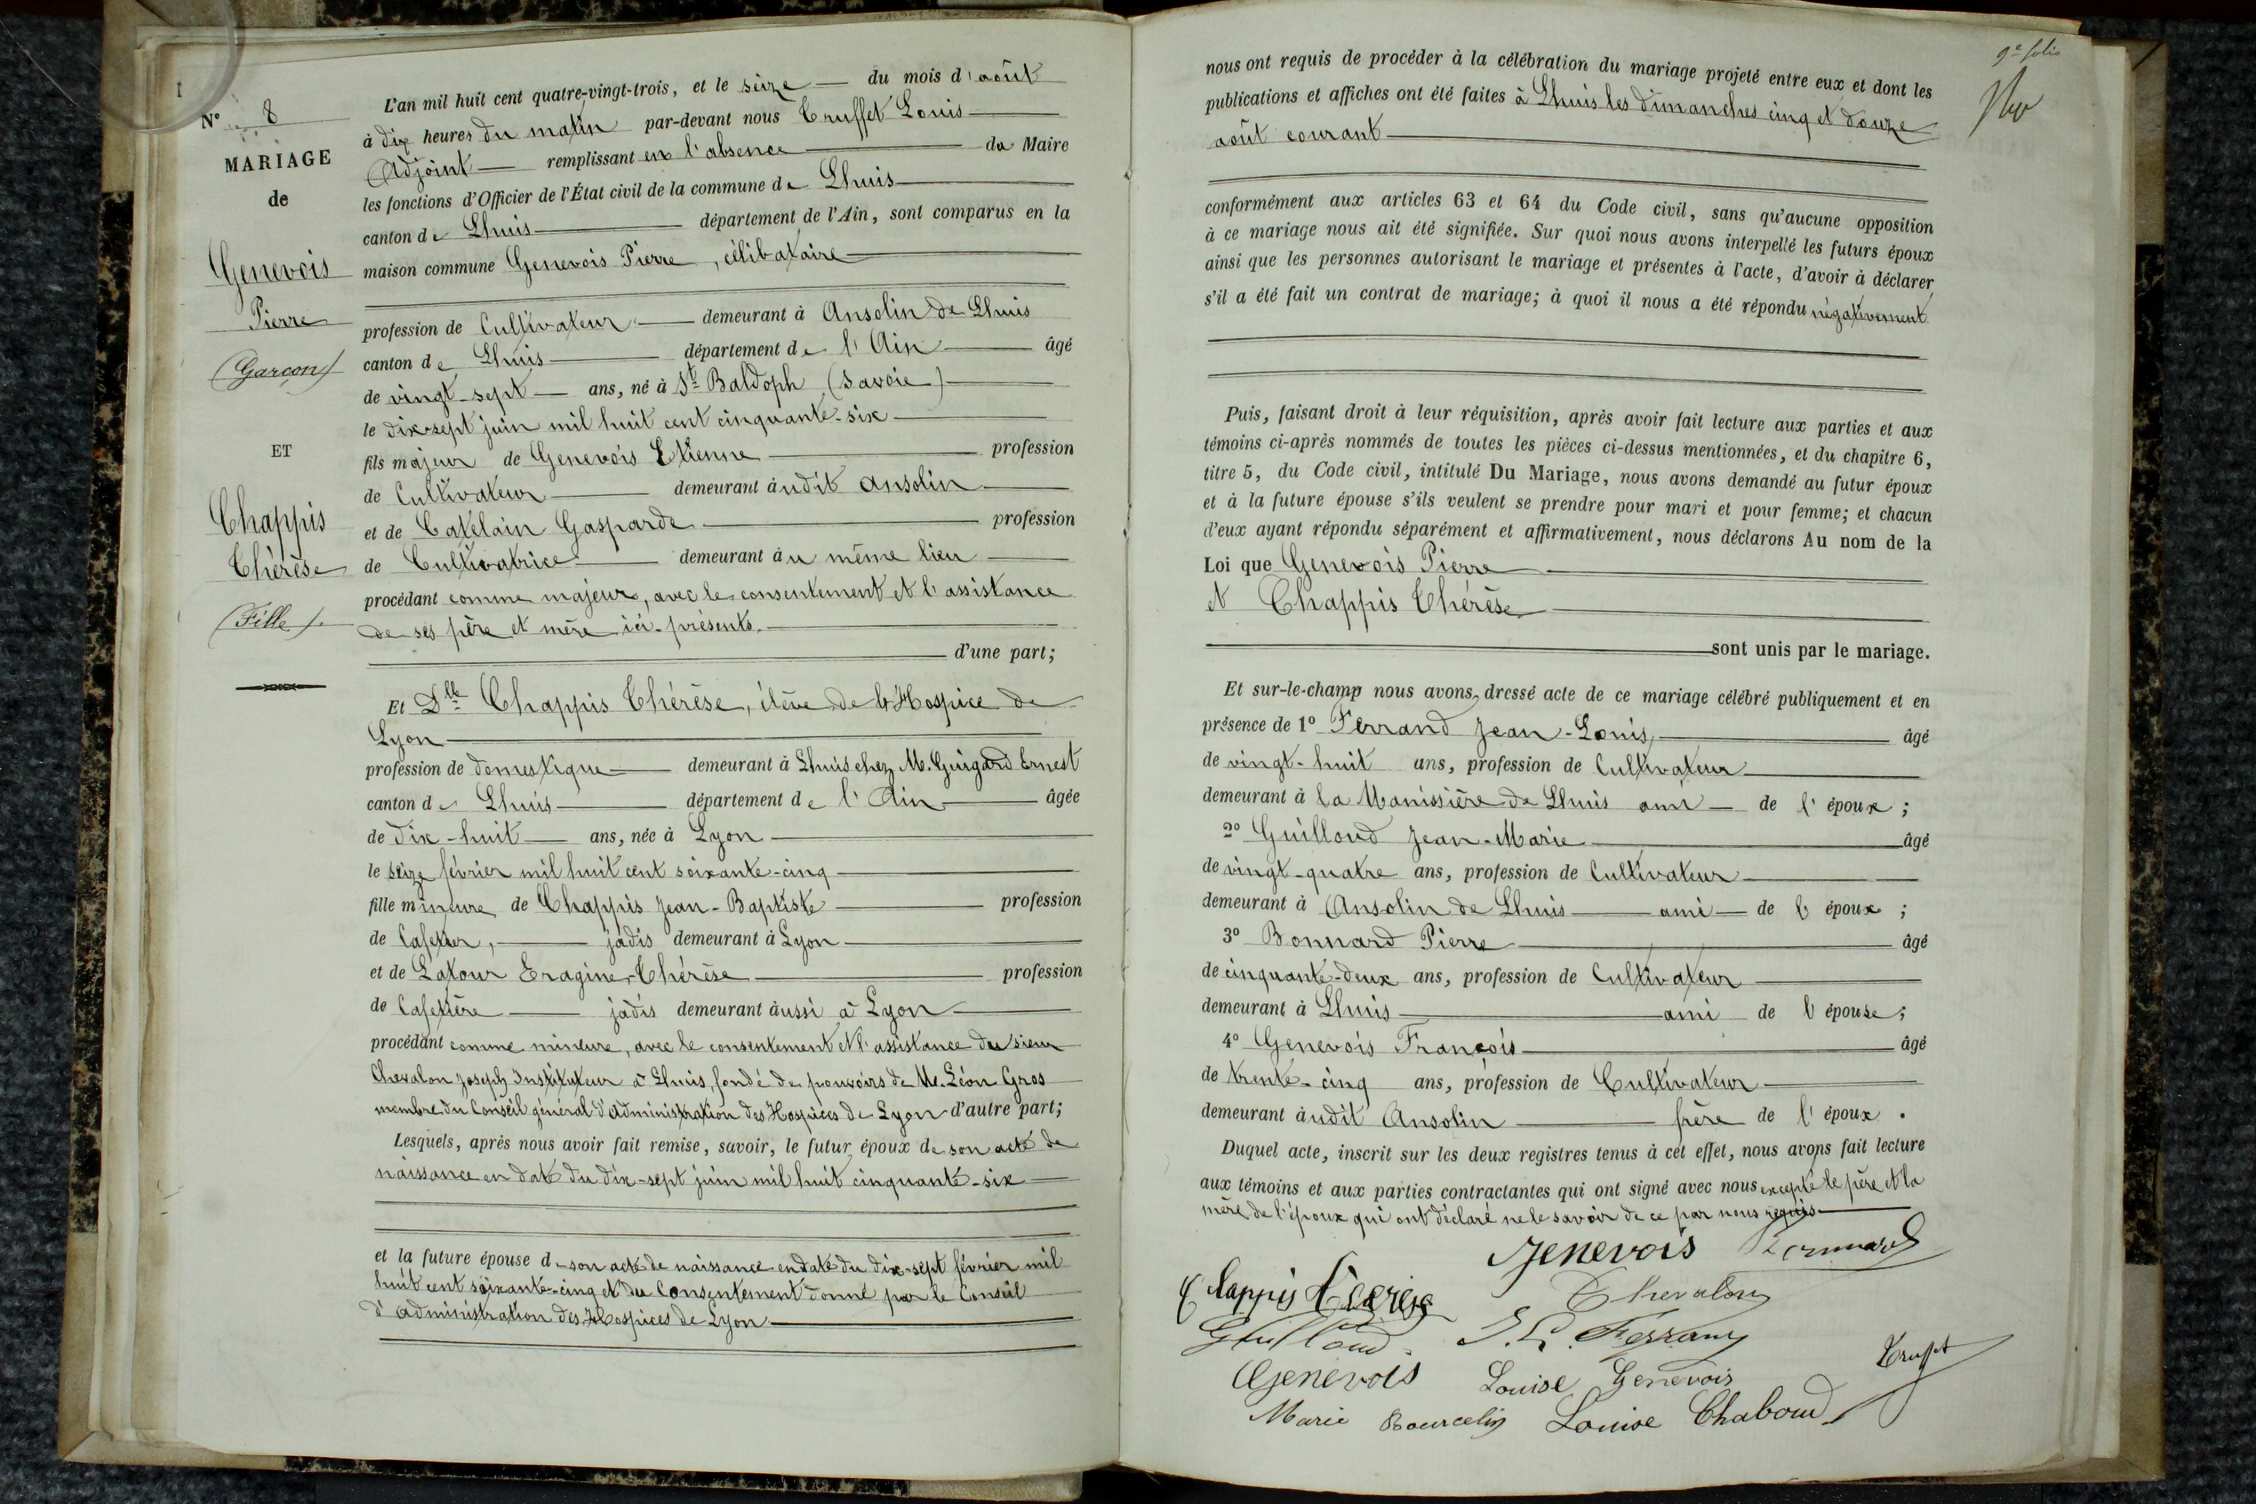 N° 8
MARIAGE
de
Genevois
Pierre
(Garçon)
ET
Chappis
Thérèse
(Fille).
L'an mil huit cent quatre-vingt-trois, et le seize du mois d'août
à dix heures du matin par-devant nous Truffet Louis
Adjoint remplissant en l'absence du Maire
les fonctions d'Officier de l'État civil de la commune de Lhuis
canton de Lhuis département de l'Ain, sont comparus en la
maison commune Genevois Pierre, célibataire
profession de Cultivateur demeurant à Ansolin de Lhuis
canton de Lhuis département de l'Ain âgé
de vingt-sept ans, né à St Baldoph (Savoie)
le dix-sept juin mil huit cent cinquante-six
fils majeur de Genevois Etienne profession
de Cultivateur demeurant àudit Ansolin
et de Catelain Gasparde profession
de Cultivatrice demeurant àu même lieu
procédant comme majeur, avec le consentement et l'assistance
de ses père et mère ici-présents.
d'une part;
Et Dlle Chappis Thérèse, élève de l'Hospice de
Lyon
profession de domestique demeurant à Lhuis chez M. Guigard Ernest
canton de Lhuis département de l'Ain âgée
de dix-huit ans, née à Lyon
le seize février mil huit cent soixante-cinq
fille mineure de Chappis Jean-Baptiste profession
de Cafetier, jadis demeurant à Lyon
et de Latour Eragine-Thérèse profession
de Cafetière jadis demeurant àussi à Lyon
procédant comme mineure, avec le consentement et l'assistance du sieur
Chevalon Joseph Instituteur à Lhuis, fondé de pouvoirs de Mr. Léon Gros
membre du Conseil général d'administration des Hospices de Lyon d'autre part;
Lesquels, après nous avoir fait remise, savoir, le futur époux de son acte de
naissance en date du dix-sept juin mil huit cinquante-six
et la future épouse de son acte de naissance en date du dix-sept février mil
huit cent soixante-cinq et du Consentement donné par le Conseil
d'administration des Hospices de Lyon
9e folio
nous ont requis de procéder à la célébration du mariage projeté entre eux et dont les
publications et affiches ont été faites à Lhuis les dimanches cinq et douze
août courant
conformément aux articles 63 et 64 du Code civil, sans qu'aucune opposition
à ce mariage nous ait été signifiée. Sur quoi nous avons interpellé les futurs époux
ainsi que les personnes autorisant le mariage et présentes à l'acte, d'avoir à déclarer
s'il a été fait un contrat de mariage; à quoi il nous a été répondu négativement
Puis, faisant droit à leur réquisition, après avoir fait lecture aux parties et aux
témoins ci-après nommés de toutes les pièces ci-dessus mentionnées, et du chapitre 6,
titre 5, du Code civil, intitulé Du Mariage, nous avons demandé au futur époux
et à la future épouse s'ils veulent se prendre pour mari et pour femme; et chacun
d'eux ayant répondu séparément et affirmativement, nous déclarons Au nom de la
Loi que Genevois Pierre
et Chappis Thérèse
sont unis par le mariage.
Et sur-le-champ nous avons dressé acte de ce mariage célébré publiquement et en
présence de 1° Ferrand Jean-Louis, âgé
de vingt-huit ans, profession de Cultivateur
demeurant à la Manissière de Lhuis ami de l'époux;
2° Guilloud Jean-Marie âgé
de vingt-quatre ans, profession de Cultivateur
demeurant à Ansolin de Lhuis ami de l'époux;
3° Bonnard Pierre âgé
de cinquante-deux ans, profession de Cultivateur
demeurant à Lhuis ami de l'épouse;
4° Genevois François âgé
de trente-cinq ans, profession de Cultivateur
demeurant àudit Ansolin frère de l'époux.
Duquel acte, inscrit sur les deux registres tenus à cet effet, nous avons fait lecture
aux témoins et aux parties contractantes qui ont signé avec nous excepté le père et la
mère de l'époux qui ont déclaré ne le savoir de ce par nous requis
Genevois Bonnard
Chappis Thérèse Chevalon
Guilloud J. L. Ferrand
Genevois Louise Genevois Truffet
Marie Bourcelin Louise Chaboud